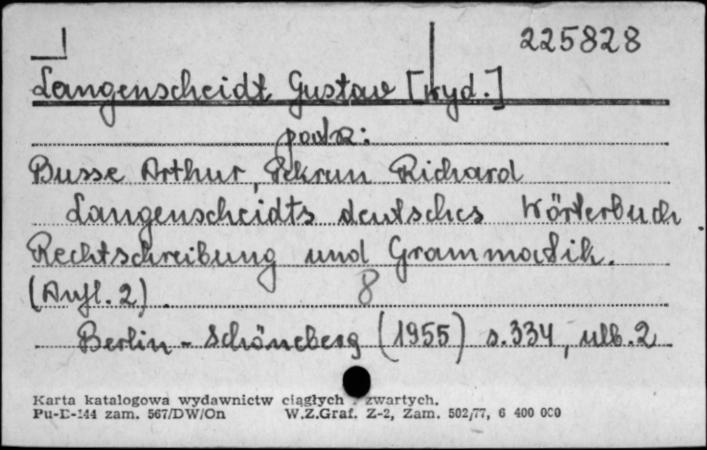 225828
Langenscheidt Gustaw [wyd.]
patrz:
Busse Arthur, Pekrun Richard
Langenscheidts deutsches Wörterbuch.
Rechtschreibung und Grammatik.
(Aufl. 2). 8
Berlin - Schöneberg (1955) s. 334, nlb. 2
Karta katalogowa wydawnictw ciągłych i zwartych.
Pu-D-144 zam. 567/DW/On W.Z.Graf. Z-2, Zam. 502/77, 6 400 000